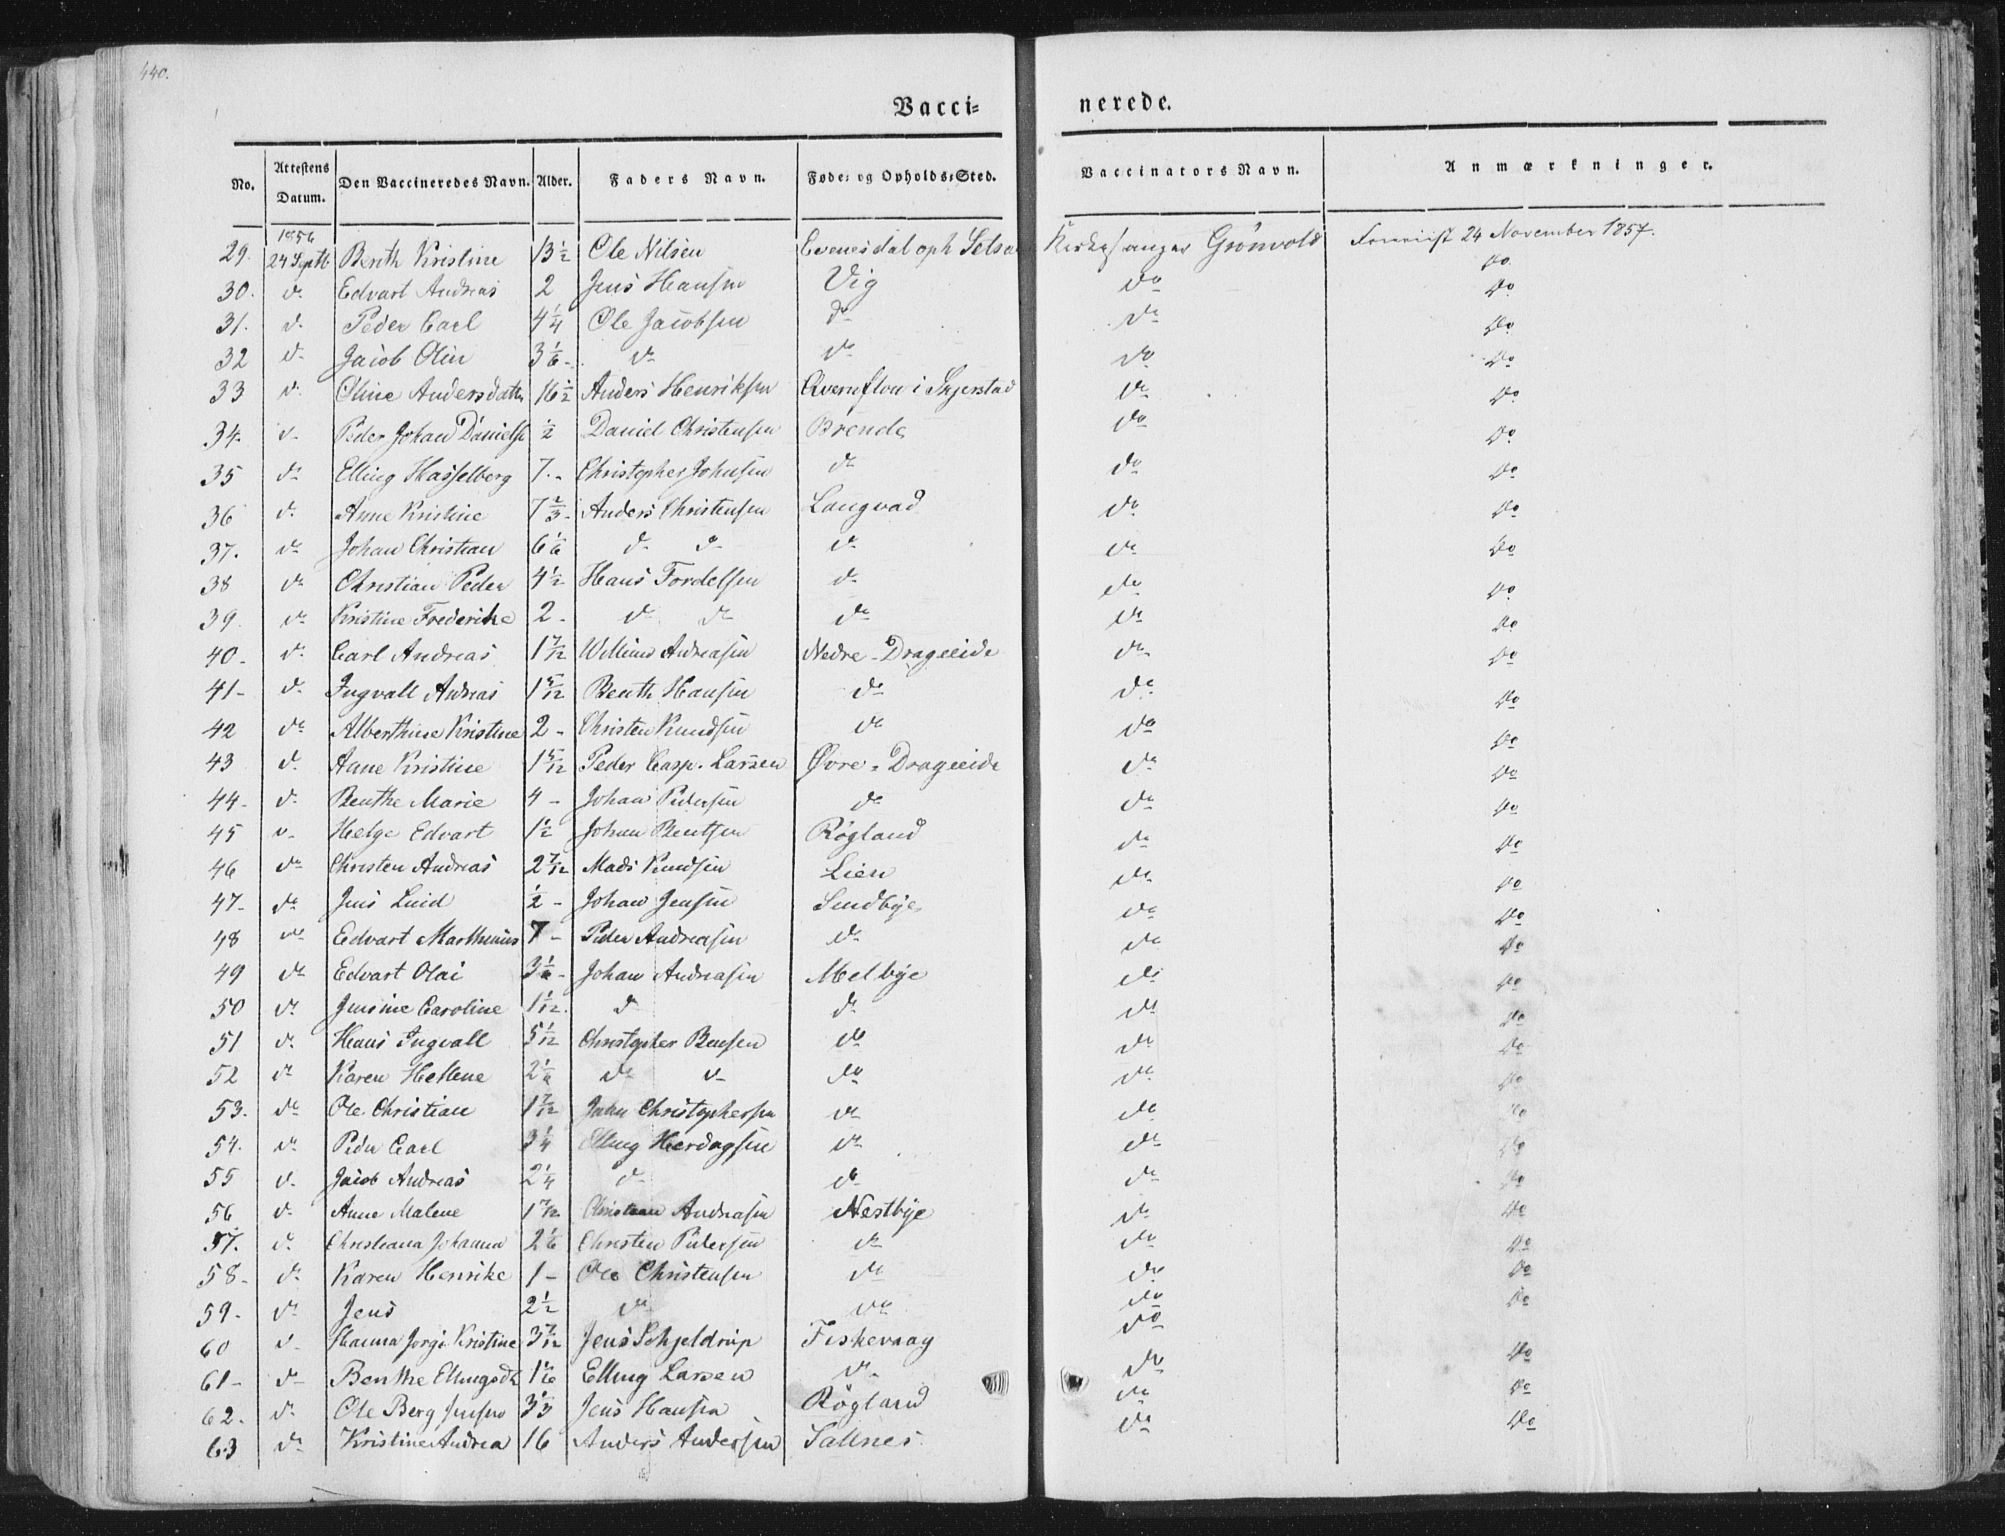 440.
Vacci= nerede.
No. Attestens Datum. Den Vaccineredes Navn. Alder. Faders Navn. Føde= og Opholds=Sted. Vaccinators Navn. Anmærkninger.
1856
29. 24 Septb Benth Kristine 13 1/2 Ole Nilsen Evenesdal oph Kirkesanger Grönvold 24 November 1857.
30. do Edvart Andreas 2 Jens Hansen Vig do do
31. do Peder Carl 4 1/4 Ole Jacobsen do do do
32 do Jacob Olin 3 1/6 - do do do do
33 do Oline Andersdatter 16 1/2 Anders Henriksen i Skjerstad do do
34. do Peder Johan Daniels 1/2 Daniel Christensen Brende do do
35 do Elling Hasselberg 7. - Christopher Johnsen do do do
36 do Anne Kristine 7 2/3 - Anders Christensen Langvad do do
37. do Johan Christian 6 1/6 do do do do do
38 do Christian Peder 4 1/2 Hans Tordelsen do do do
39. do Kristine Frederike 2 - do do do do do
40 - do Carl Andreas 1 7/12 Willius Andreasen Nedre - Drageeide do do
41 - do Ingvall Andreas 1 5/12 Benth Hansen do do do
42 do Alberthine Kristine 2 - Christen Knudsen do do do
43 do Anne Kristine 1 5/12 Peder Casp. Larsen Øvre - Drageeide do do
44 - do Benthe Marie 4 - Johan Pedersen do do do
45 do Helge Edvart 1 1/2 Johan Bentsen Røgland do do
46 do Christen Andreas 2 7/12 Mads Knudsen Lien do do
47 - do Jens Luid 1/2 - Johan Jensen Sundbye do do
48 do Edvart Marthinus 7 - Peder Andreasen do do do
49 do Edvart Olai 3 1/6 - Johan Andreasen Melbye do do
50 do Jensine Caroline 1 1/12. do do do do
51 do Hans Ingvall 5 1/12 Christopher Bensen do do do
52 do Karen Hellene 2 1/6 do do do do do
53. do Ole Christian 1 7/12 John Christophersen do do do
54. do Peder Carl 3 1/4 Elling Herdagsen do do do
55 do Jacob Andreas 2 1/4 do do do do
56 do Anne Malene 1 7/12 Christian Andreasen Nestbye do do
57. do Christiana Johanna 2 1/6 Christen Pedersen do do do
58 - do Karen Henrike 1 - Ole Christensen do do do
59. do Jens 2 1/2 do do do do
60 do Hanna Jorgi Kristine 3 7/12 Jens Schjeldrup Fiskevaag do
61 - do Benthe Ellingsdtr 1 1/6 Elling Larsen do do do
62. do Ole Berg Jensen 3 1/3 Jens Hansen Røgland do do
63 do Kristine Andrea 16 Anders Andersen Sallnes do do